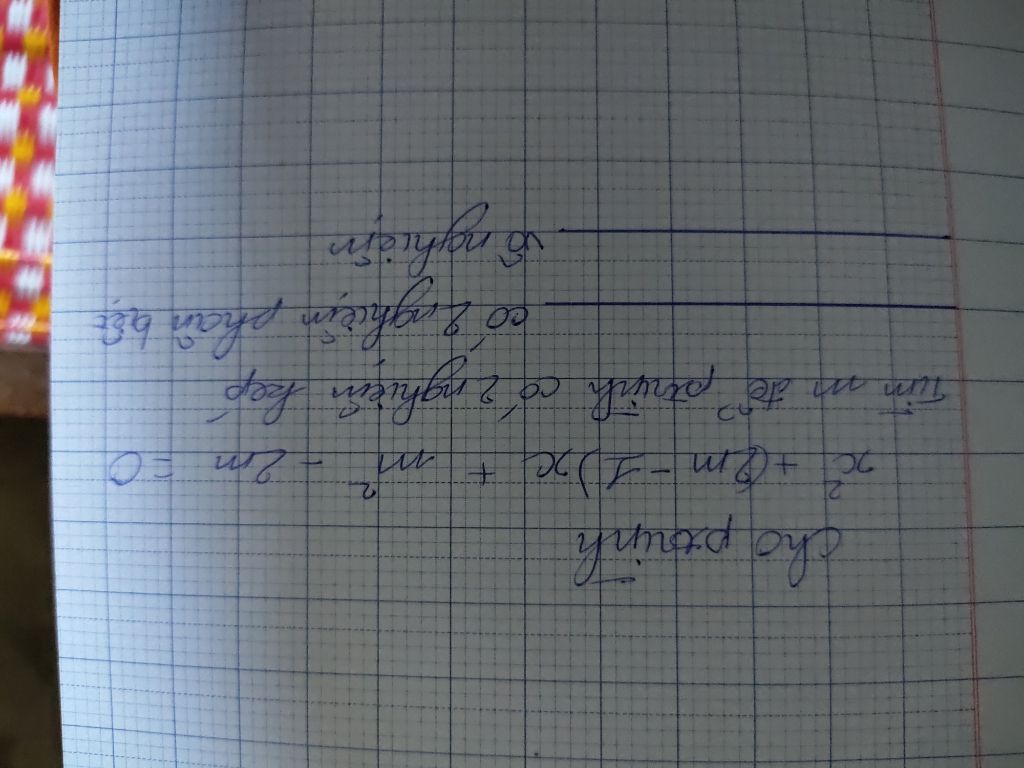 Cho ptrình
x² + (2m - 1)x + m² - 2m = 0
Tìm m để ptrình có 2 nghiệm kép
có 2 nghiệm phân biệt
vô nghiệm